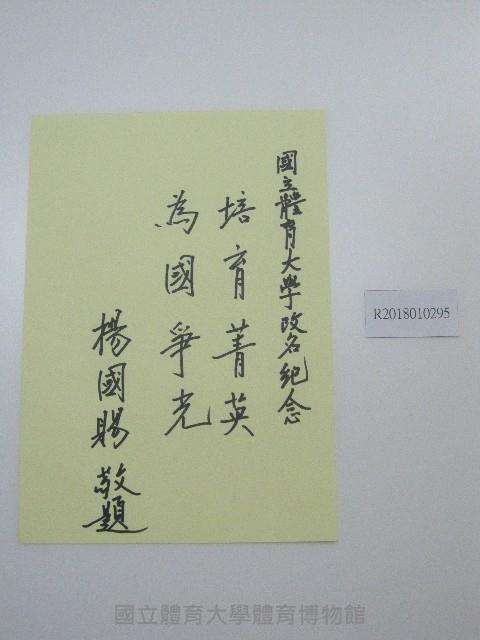 國立體育大學改名紀念
培育菁英
為國爭光
楊國賜 敬題
R2018010295
國立體育大學體育博物館